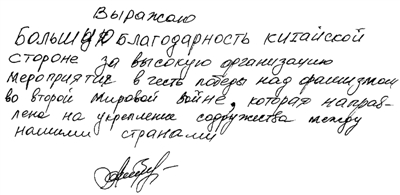 Выражаю
большую благодарность китайской
стороне за высокую организацию
мероприятия в честь победы над фашизмом
во второй мировой войне, которая направ-
лена на укрепление содружества между
нашими странами